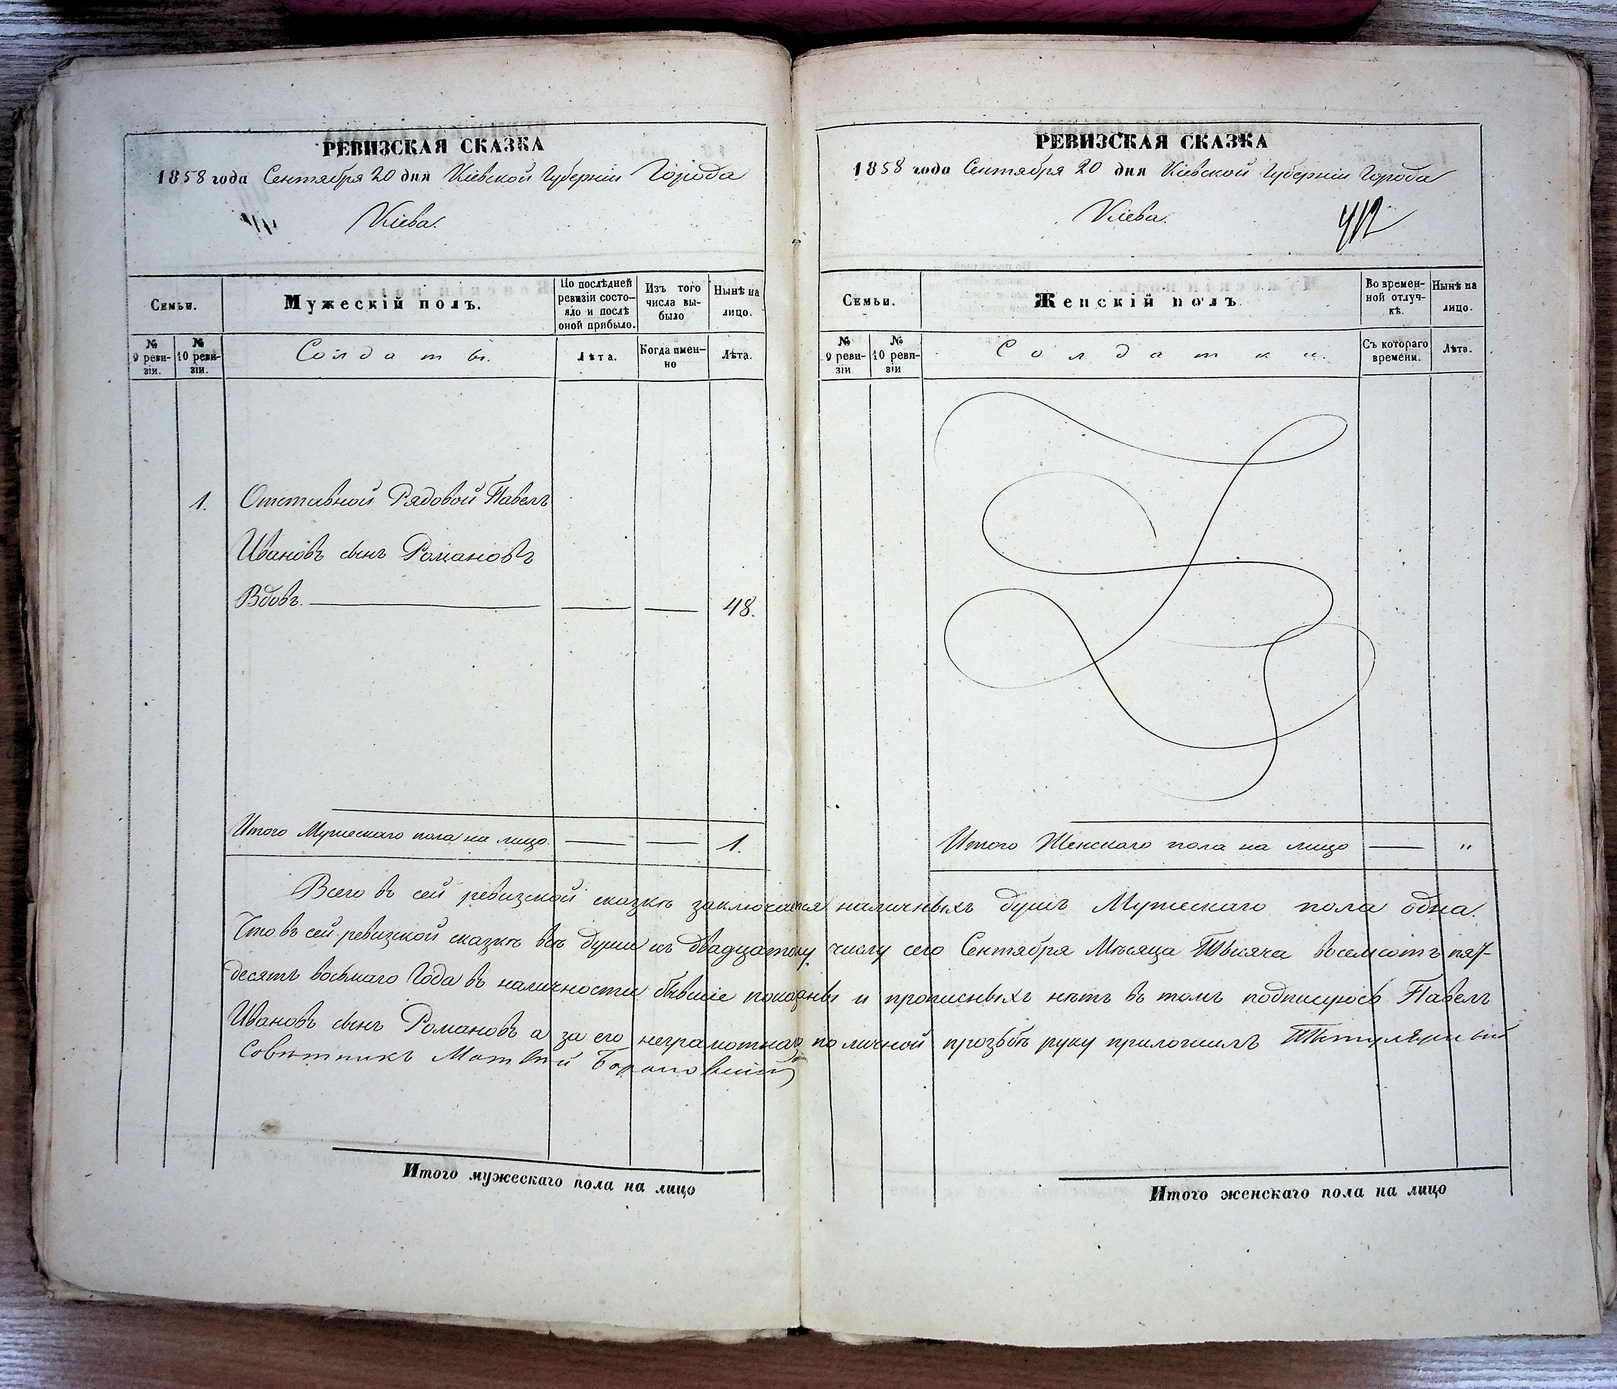 РЕВИЗСКАЯ СКАЗКА
1858 года Сентября 20 дня Кіевской Губерніи Города
Кіева.
Семьи.
Мужескій полъ.
По послѣдней ревизіи состо-
яло и послѣ
оной прибыло.
Изъ того
числа вы-
было
Нынѣ на
лицо.
№
9 реви-
зіи.
№
10 реви-
зіи.
Солдаты.
Лѣта.
Когда имен-
но
Лѣта.
1. Отставной Рядовой Павелъ
Ивановъ сынъ Романовъ
Вдовъ. — — — 48.
Итого Мужескаго пола на лицо — — 1.
Итого мужескаго пола на лицо
РЕВИЗСКАЯ СКАЗКА
1858 года Сентября 20 дня Кіевской Губерніи Города
Кіева.
412
Семьи.
Женскій полъ.
Во времен-
ной отлуч-
кѣ.
Нынѣ на
лицо.
№
9 реви-
зіи
№
10 реви-
зіи
Солдатки.
Съ котораго
времени.
Лѣта.
Итого Женскаго пола на лицо — "
Всего въ сей ревизской сказкѣ заключается наличныхъ душъ Мужескаго пола одна.
Что въ сей ревизской сказкѣ всѣ души къ двадцатому числу сего Сентября Мѣсяца Тысяча восемсотъ пят-
десятъ восьмаго Года въ наличности бывшіе показаны и прописныхъ нѣтъ въ томъ подписуюсь Павелъ
Ивановъ сынъ Романовъ а за его неграмотнаго по личной прозьбѣ руку приложилъ Титулярный
Совѣтникъ Матвій
Итого женскаго пола на лицо